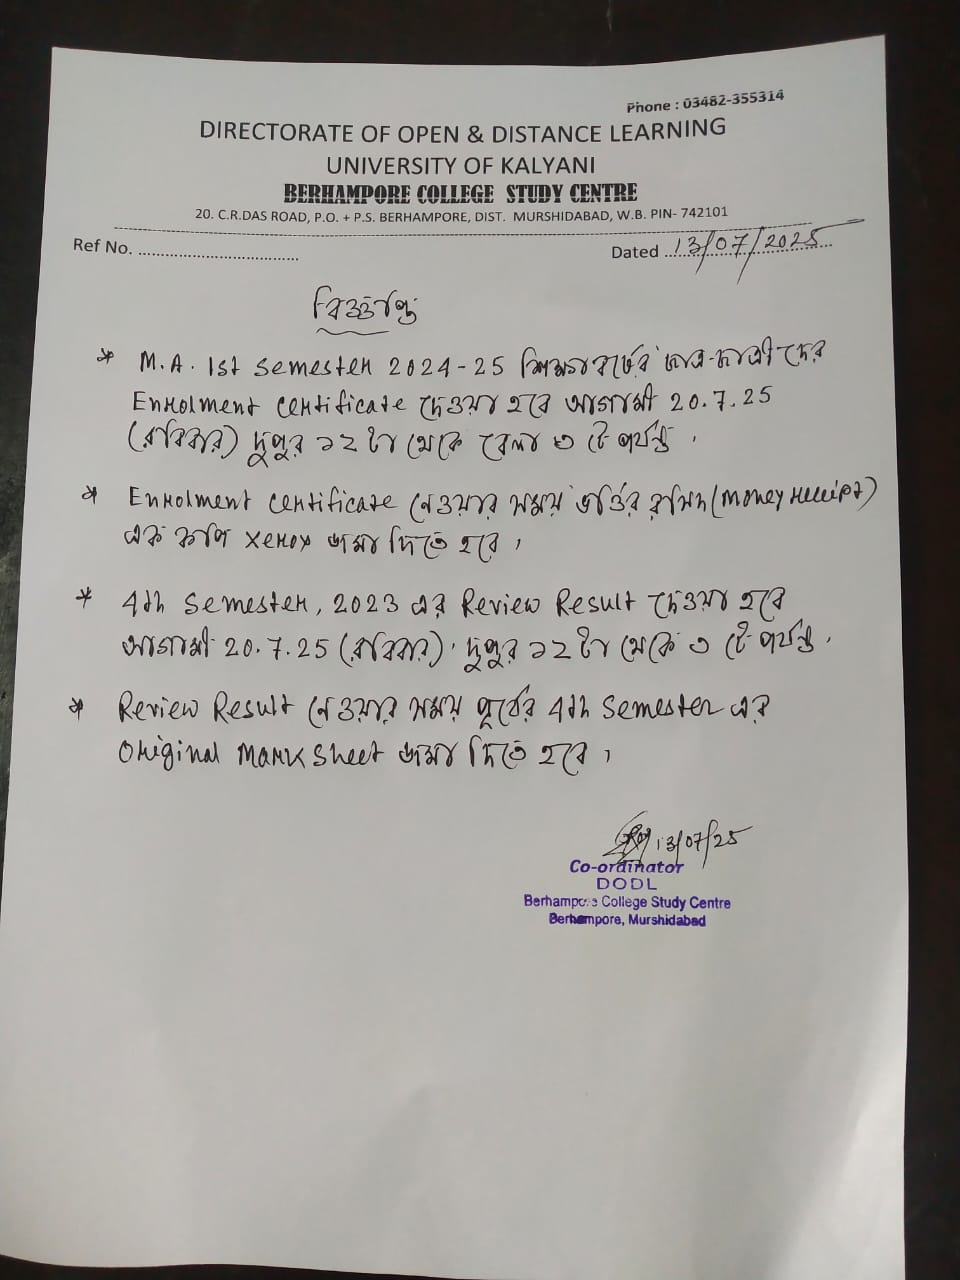 Phone : 03482-355314
DIRECTORATE OF OPEN & DISTANCE LEARNING
UNIVERSITY OF KALYANI
BERHAMPORE COLLEGE STUDY CENTRE
20. C.R.DAS ROAD, P.O. + P.S. BERHAMPORE, DIST. MURSHIDABAD, W.B. PIN- 742101
Ref No. ................................... Dated ...13/07/2025...
বিজ্ঞপ্তি
* M.A. 1st semester 2024-25 শিক্ষাবর্ষের ছাত্র-ছাত্রীদের
Enrolment certificate দেওয়া হবে আগামী 20.7.25
(রবিবার) দুপুর ১২ টা থেকে বেলা ৩ টে পর্যন্ত।
* Enrolment certificate নেওয়ার সময় ভর্তির রসিদ (Money receipt)
এক কপি xerox জমা দিতে হবে।
* 4th semester, 2023 এর Review Result দেওয়া হবে
আগামী 20.7.25 (রবিবার), দুপুর ১২ টা থেকে ৩ টে পর্যন্ত।
* Review Result নেওয়ার সময় পূর্বের 4th semester এর
Original Mark sheet জমা দিতে হবে।
13/07/25
Co-ordinator
DODL
Berhampore College Study Centre
Berhampore, Murshidabad